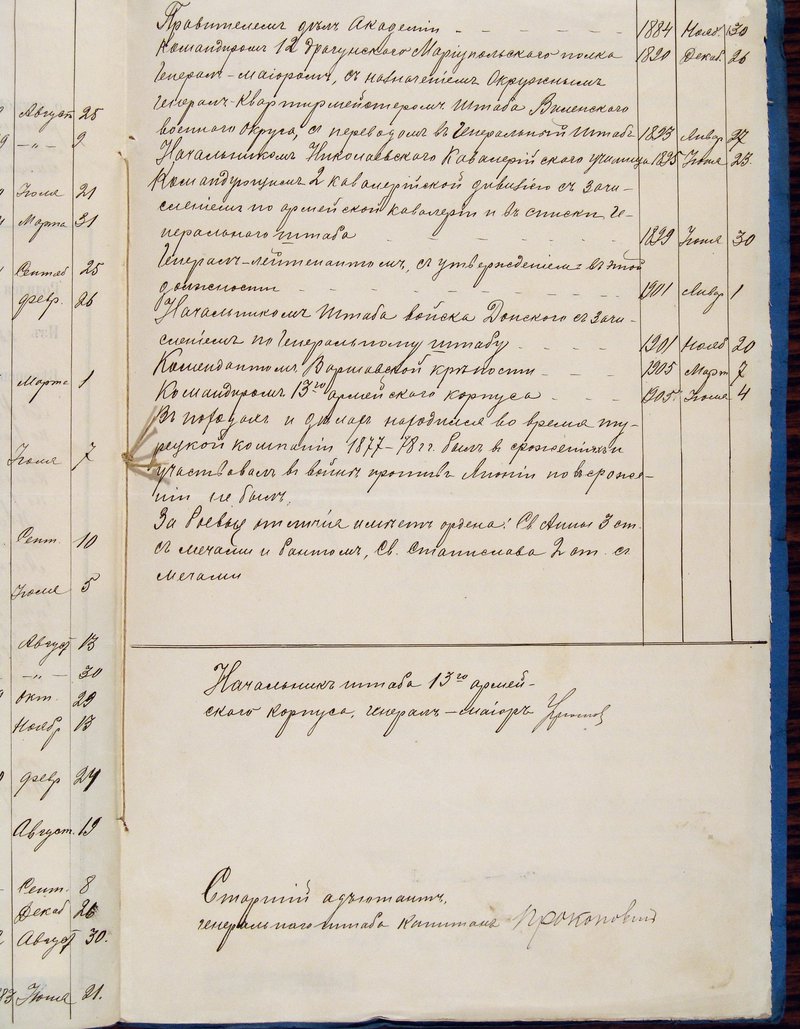 Август 25
—„— 9
Іюля 21
Марта 31
Сентяб 25
февр. 26
Марта 1
Іюля 7
Сент. 10
Іюля 5
Август 13
—„— 30
Окт. 29
Ноябр 13
февр 24
Август. 19
Сент. 8
Декаб 26
Август 30.
Іюля 21.
Правителемъ дѣлъ Академіи 1884 Нояб. 30
Командиромъ 12 драгунскаго Маріупольскаго полка Декаб. 26
Генералъ-маіоромъ, съ назначеніемъ Окружнымъ
Генералъ-Квартирмейстеромъ Штаба Виленскаго
военнаго Округа, съ переводомъ въ Генеральный Штабъ 1893 Январ 27
Начальникомъ Николаевскаго Кавалерійскаго училища 1895 Іюня 23
Командующимъ 2 кавалерійской дивизіею съ зачи-
сленіемъ по армейской кавалеріи и въ списки Ге-
неральнаго штаба 1899 Іюня 30
Генералъ-лейтенантомъ, съ утвержденіемъ въ этой
должности 1901 Январ 1
Начальникомъ Штаба войска Донского съ зачи-
сленіемъ по Генеральному штабу 1901 Нояб 20
Комендантомъ Варшавской крѣпости 1905 Март 7
Командиромъ 13го армейскаго корпуса 1905. Іюня 4
Въ походахъ и дѣлахъ находился во время ту-
рецкой компаніи 1877-78 гг. былъ въ сраженіяхъ и
участвовалъ въ войнѣ противъ Японіи но въ сраже-
ніи не былъ.
За боевыя отличія имѣетъ ордена: Св Анны 3 ст.
съ мечами и бантомъ, Св. Станислава 2 ст. съ
мечами
Начальникъ штаба 13го армей-
скаго корпуса, генералъ-маіоръ
Старшій адъютантъ,
генеральнаго штаба капитанъ Прокоповичъ